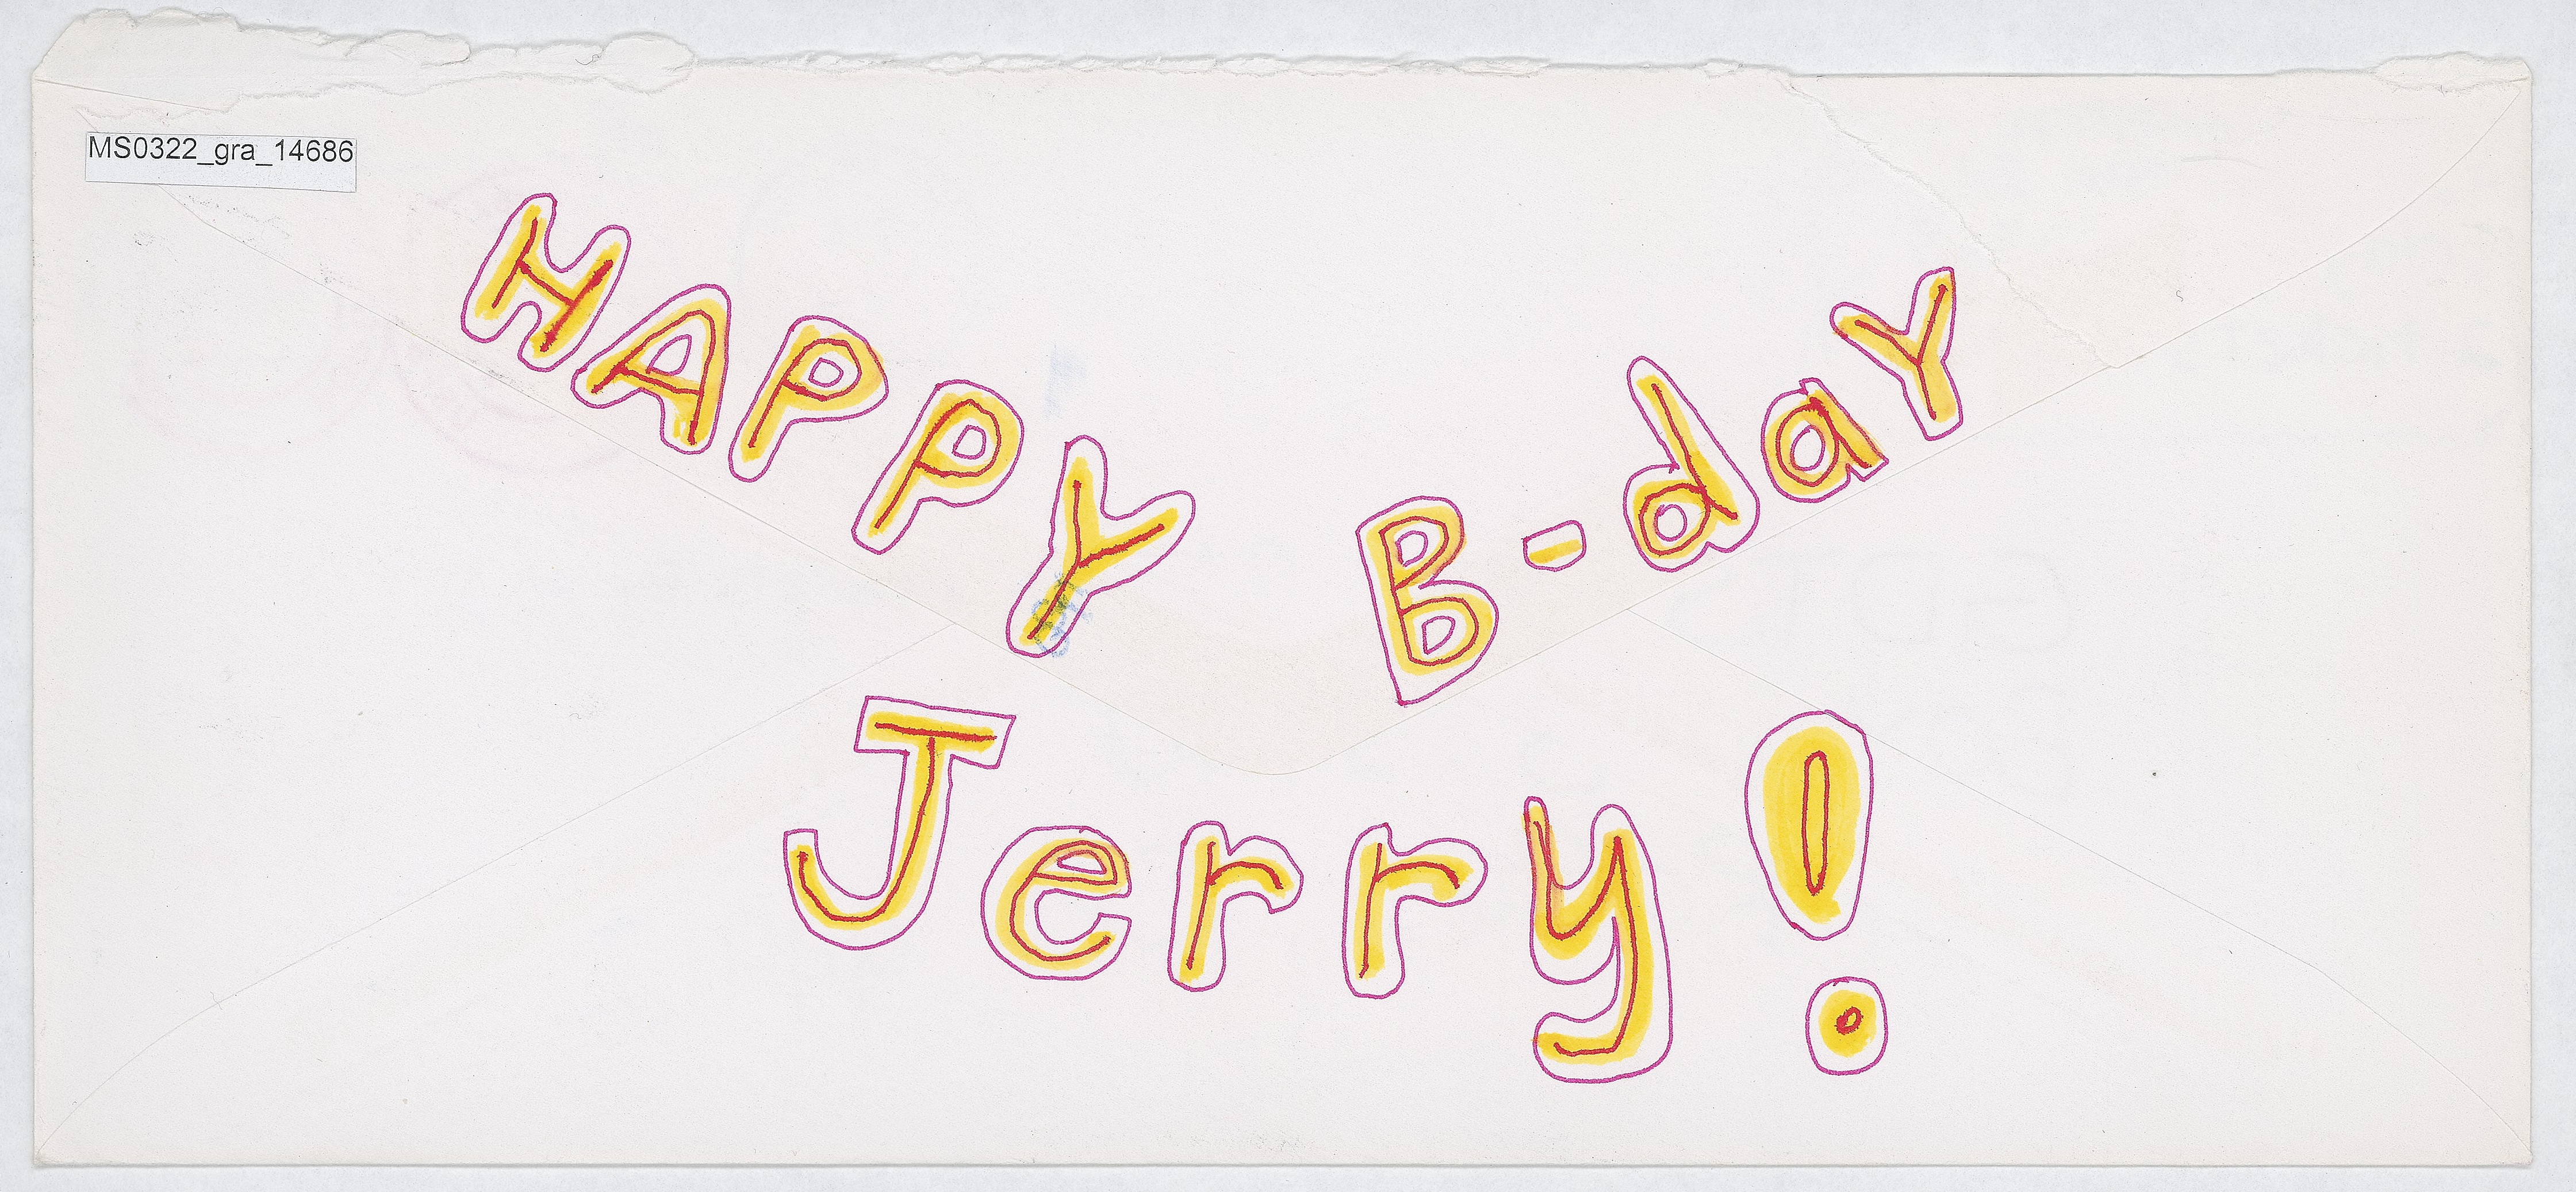 MS0322_gra_14686
HAPPY B-daY
Jerry!